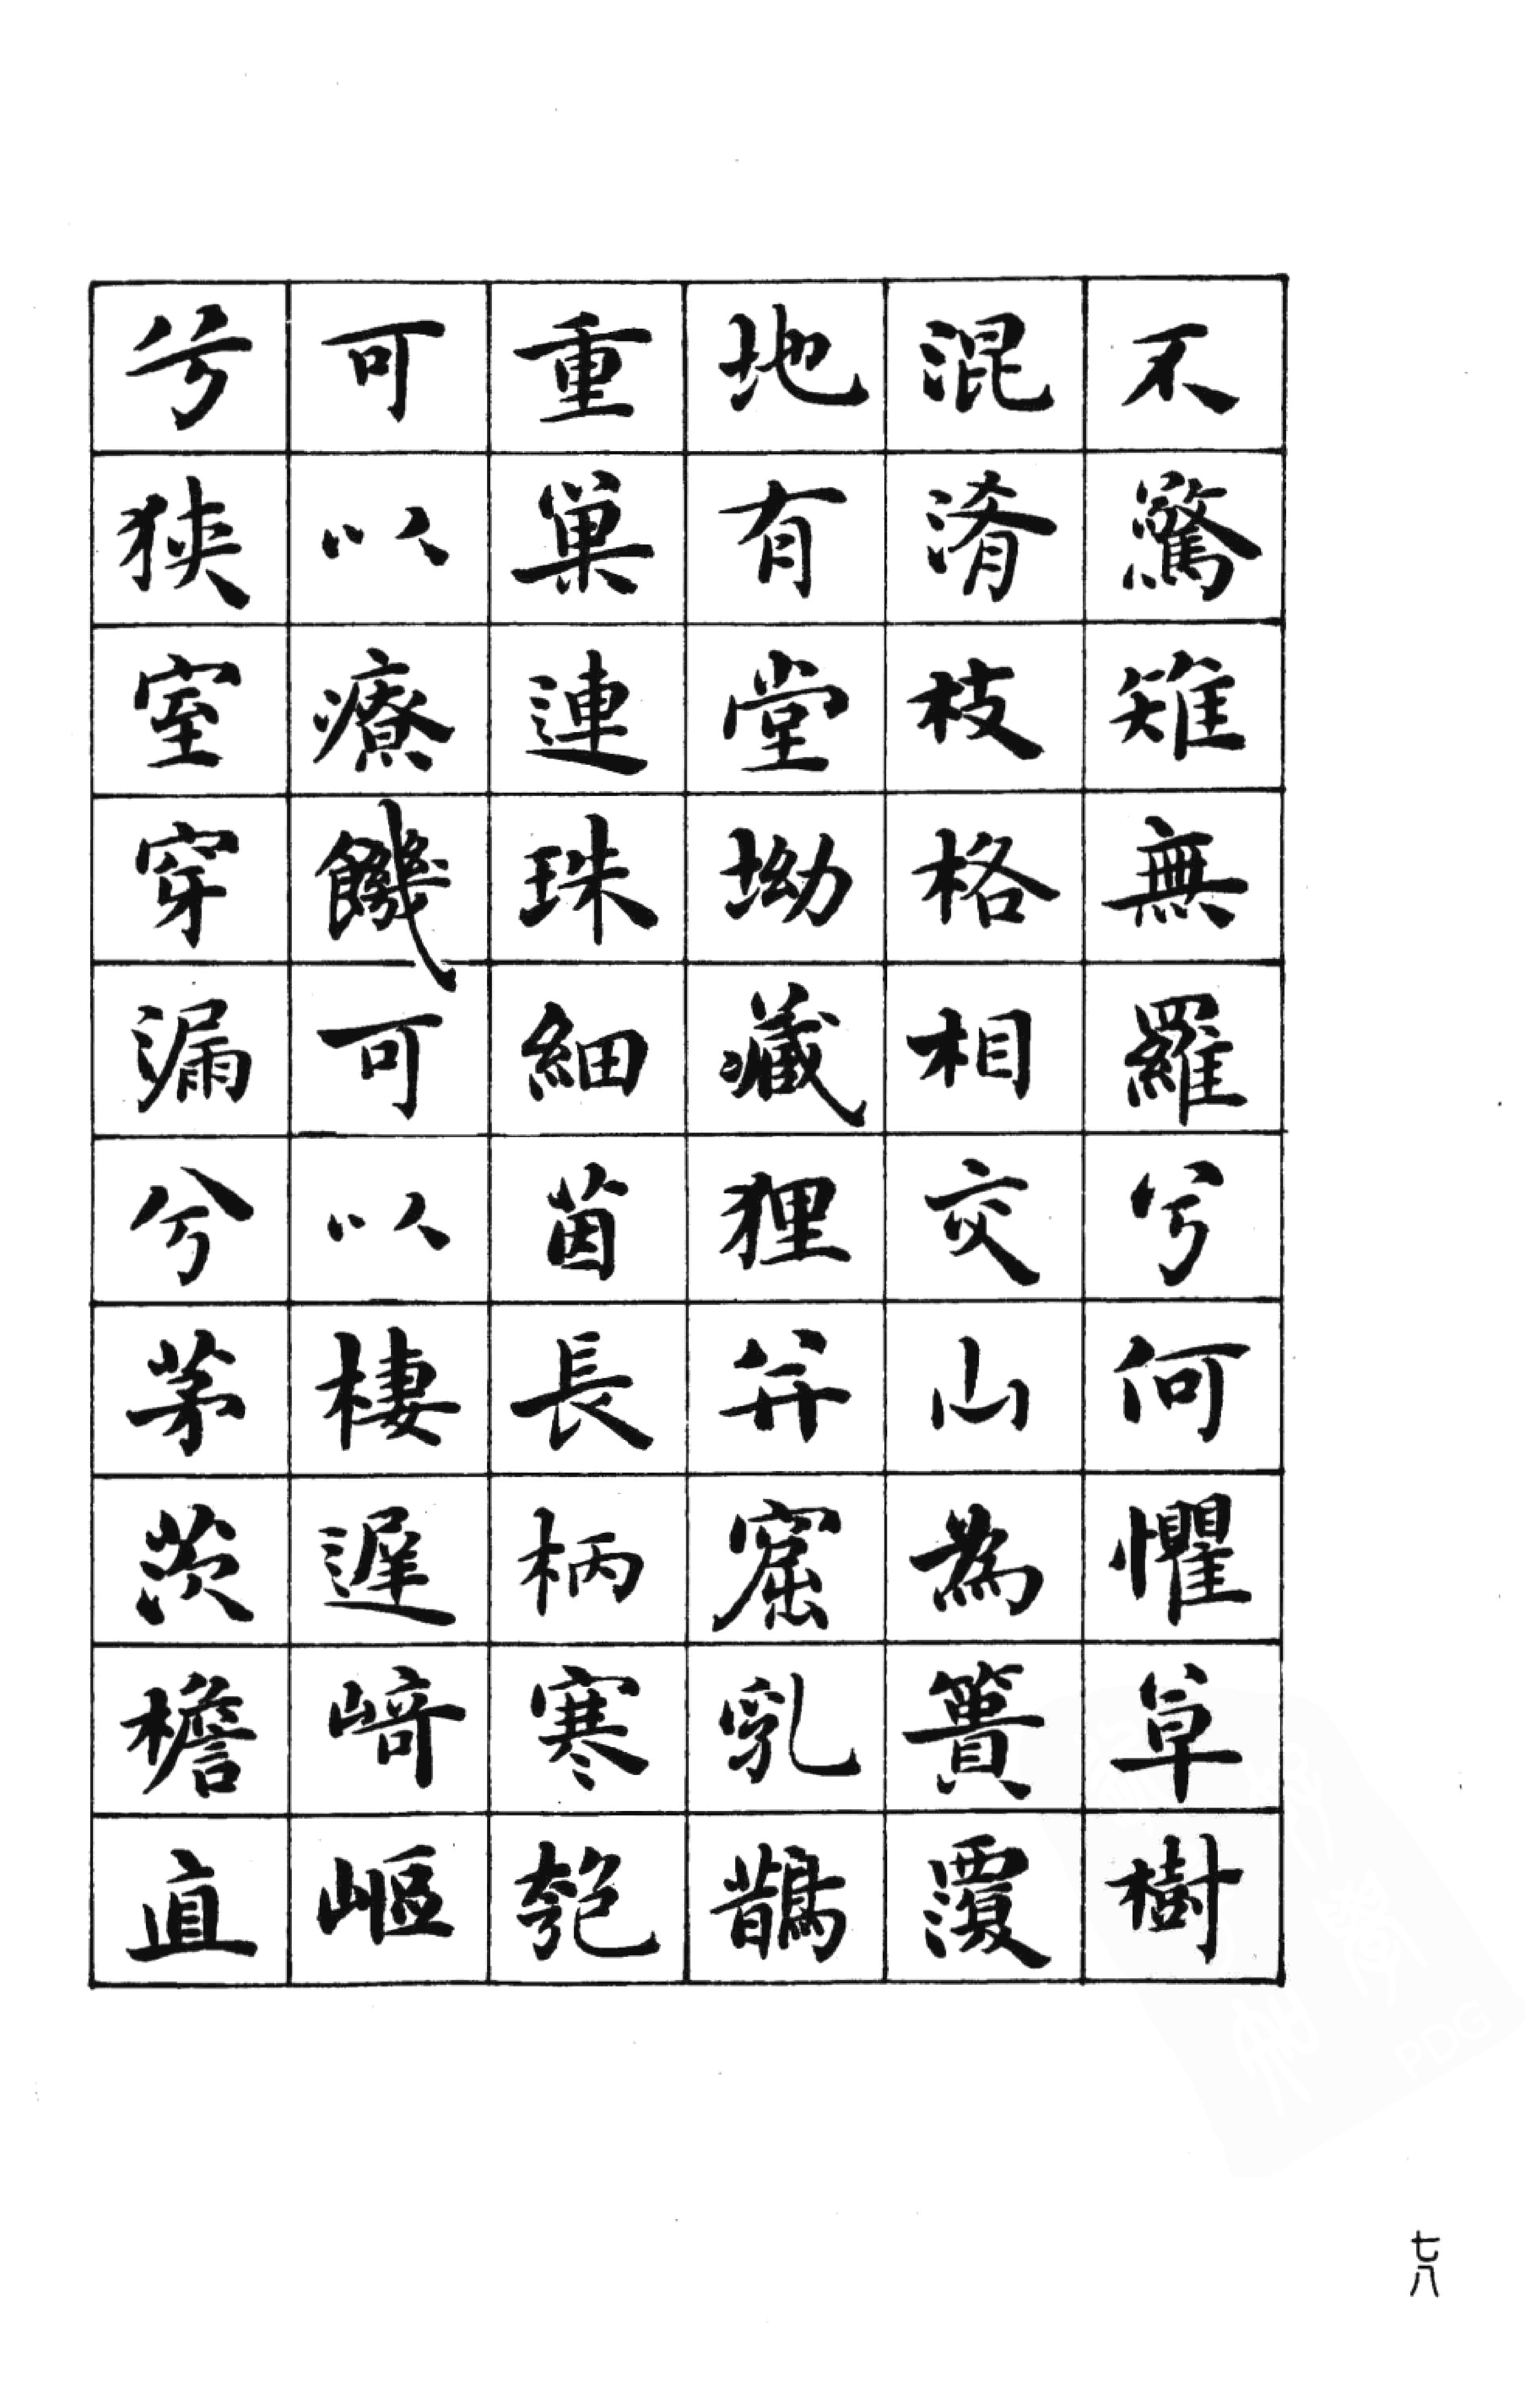 不驚雉無羅兮何懼草樹
混淆枝格相交山為簣覆
地有堂坳藏狸並窟乳鵲
重巢連珠細茵長柄寒匏
可以療饑可以棲遲崎嶇
兮狹室穿漏兮茅茨檐直
七八